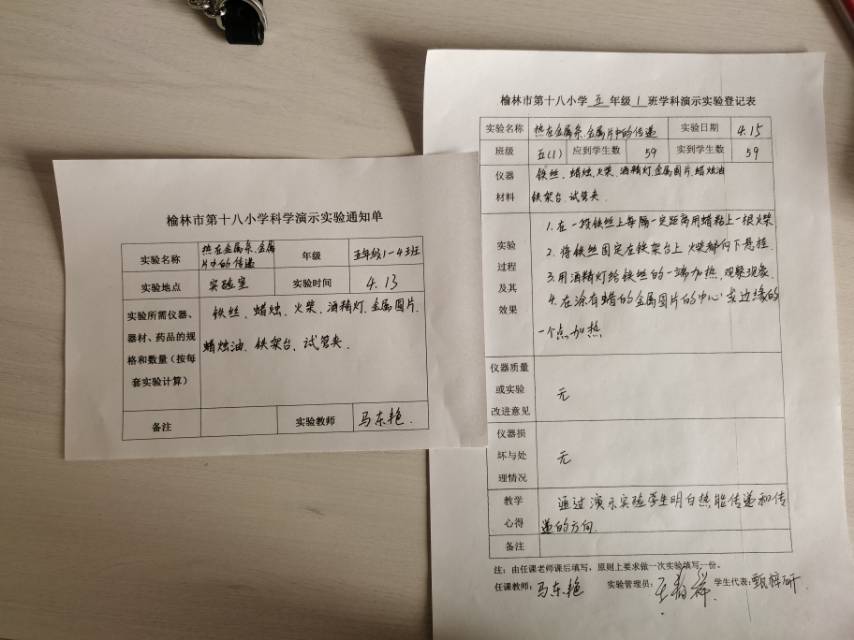 榆林市第十八小学科学演示实验通知单
实验名称 热在金属条、金属片中的传递 年级 五年级1-4班
实验地点 实验室 实验时间 4.13
实验所需仪器、器材、药品的规格和数量（按每套实验计算）
铁丝、蜡烛、火柴、酒精灯、金属圆片
蜡烛油、铁架台、试管夹.
备注 实验教师 马东艳.
榆林市第十八小学 五 年级 1 班学科演示实验登记表
实验名称 热在金属条、金属片中的传递 实验日期 4.15
班级 五(1) 应到学生数 59 实到学生数 59
仪器材料
铁丝、蜡烛、火柴、酒精灯、金属圆片、蜡烛油
铁架台、试管夹
实验过程及其效果
1.在一段铁丝上每隔一定距离用蜡粘上一根火柴
2.将铁丝固定在铁架台上 火柴都向下悬挂.
3.用酒精灯给铁丝的一端加热,观察现象.
4.在涂有蜡的金属圆片的中心或边缘的
一个点加热
仪器质量或实验改进意见 无
仪器损坏与处理情况 无
教学心得
通过演示实验学生明白热能传递和传
递的方向.
备注
注：由任课老师课后填写，原则上要求做一次实验填写一份。
任课教师：马东艳 实验管理员： 学生代表：甄梓研